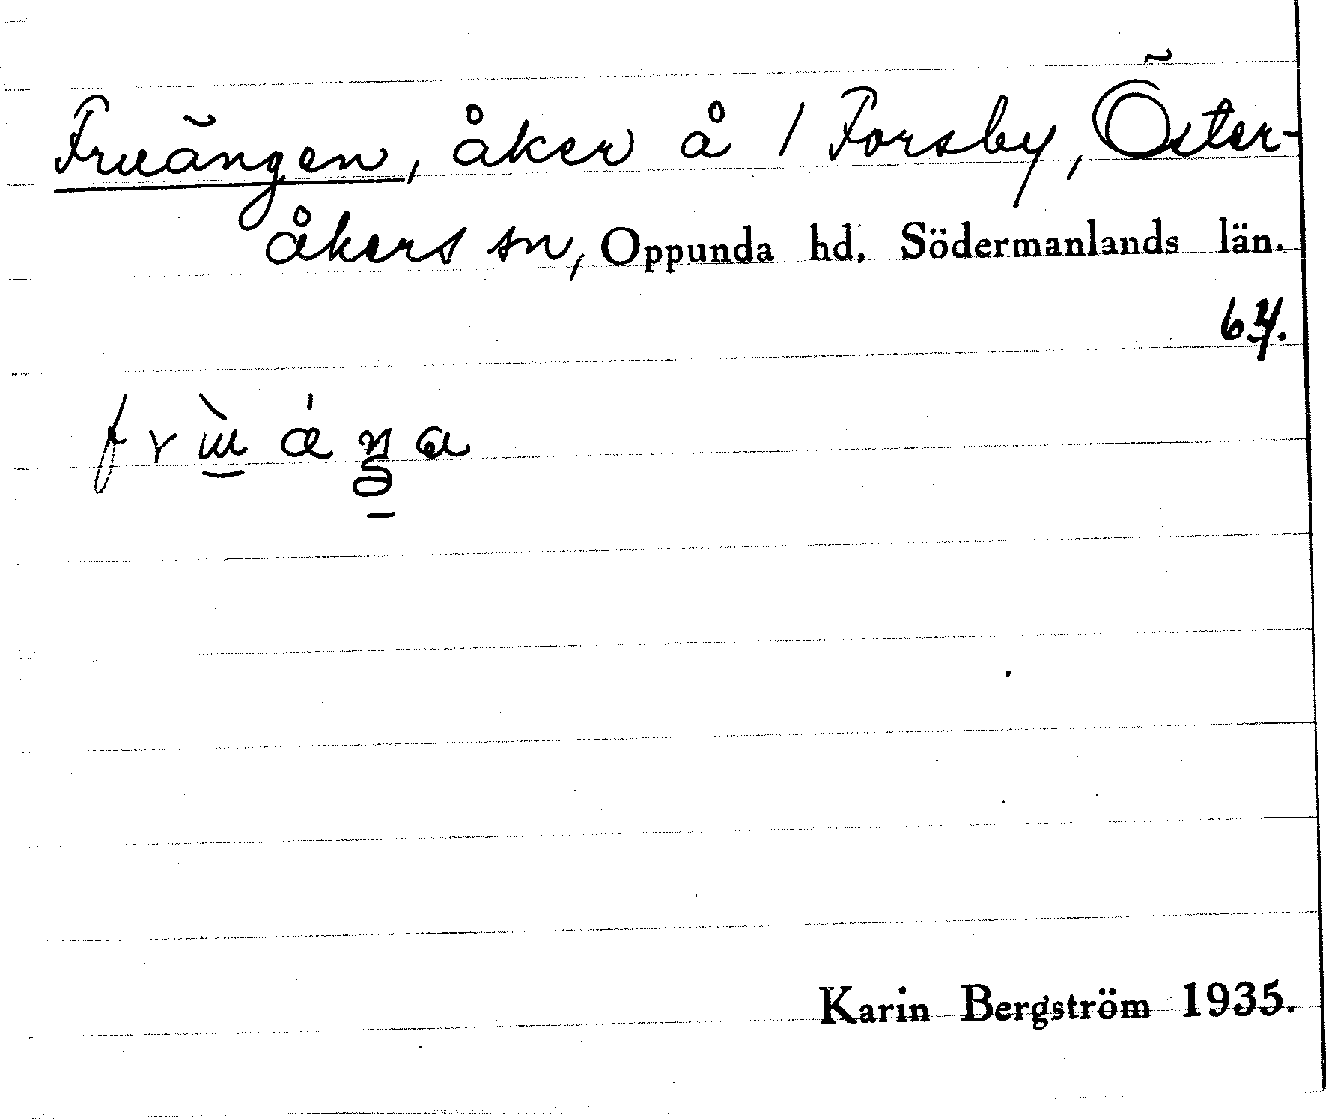 Fruängen, åker å / Forsby, Öster-
åkers sn, Oppunda hd. Södermanlands län.
64.
Karin Bergström 1935.